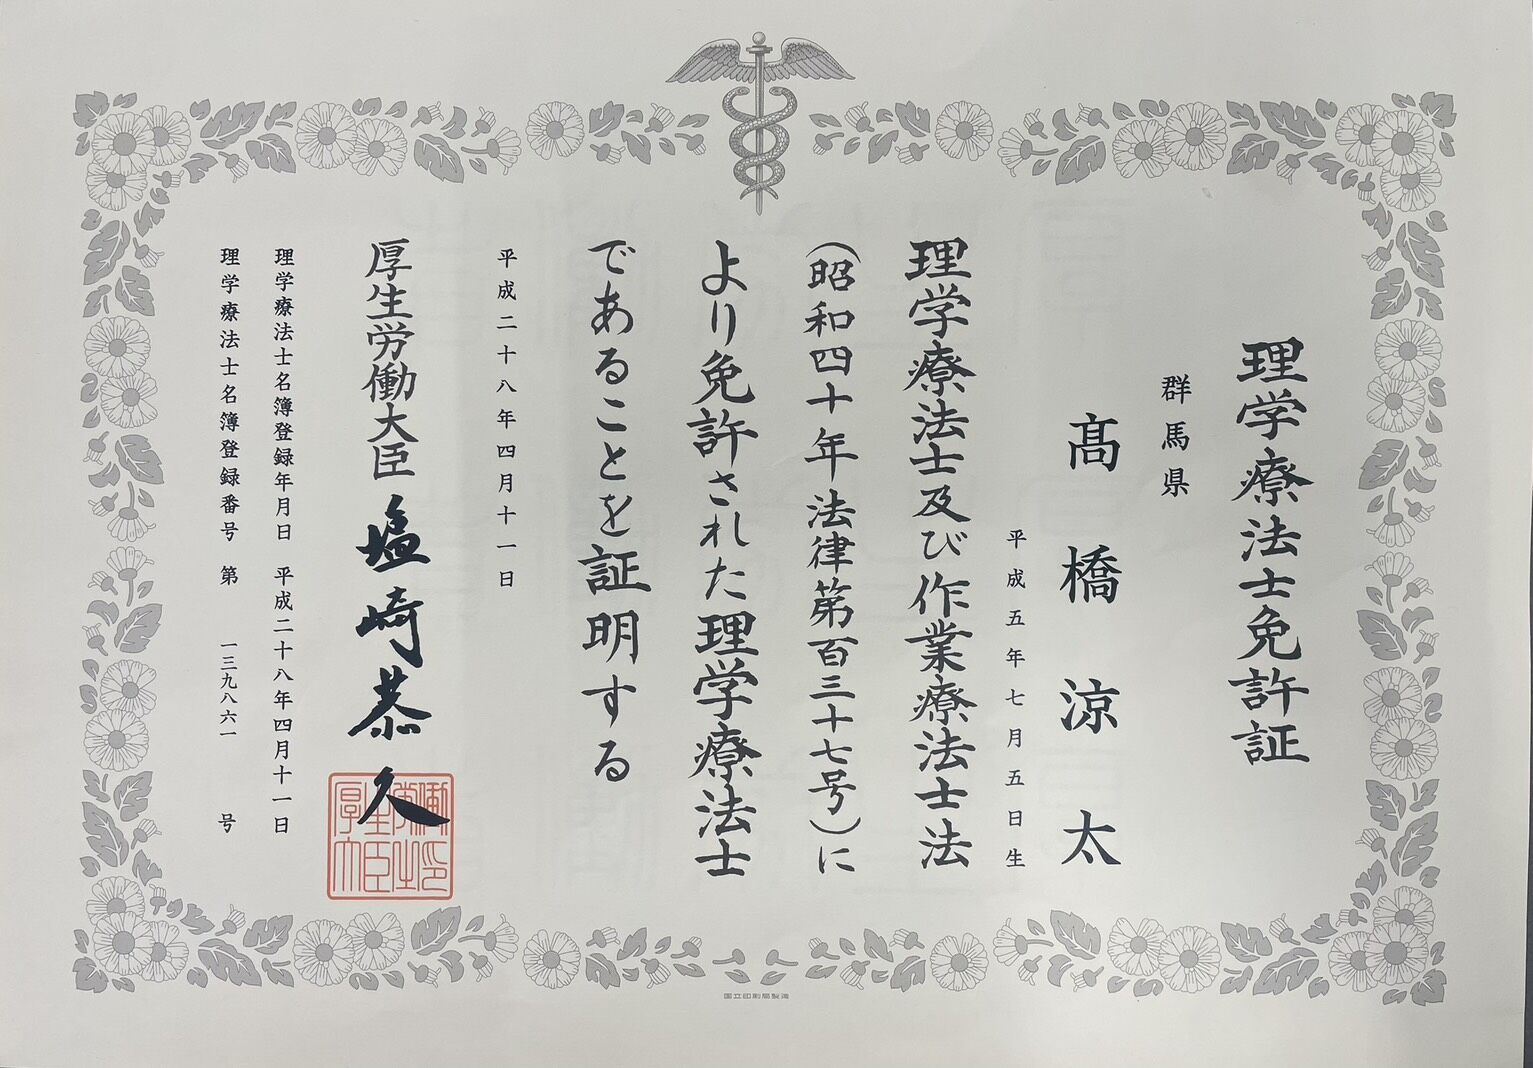 理学療法士免許証
群馬県
髙橋涼太
平成五年七月五日生
理学療法士及び作業療法士法
(昭和四十年法律第百三十七号)に
より免許された理学療法士
であることを証明する
平成二十八年四月十一日
厚生労働大臣 塩崎恭久
理学療法士名簿登録年月日 平成二十八年四月十一日
理学療法士名簿登録番号 第 一三九八六一 号
国立印刷局製造